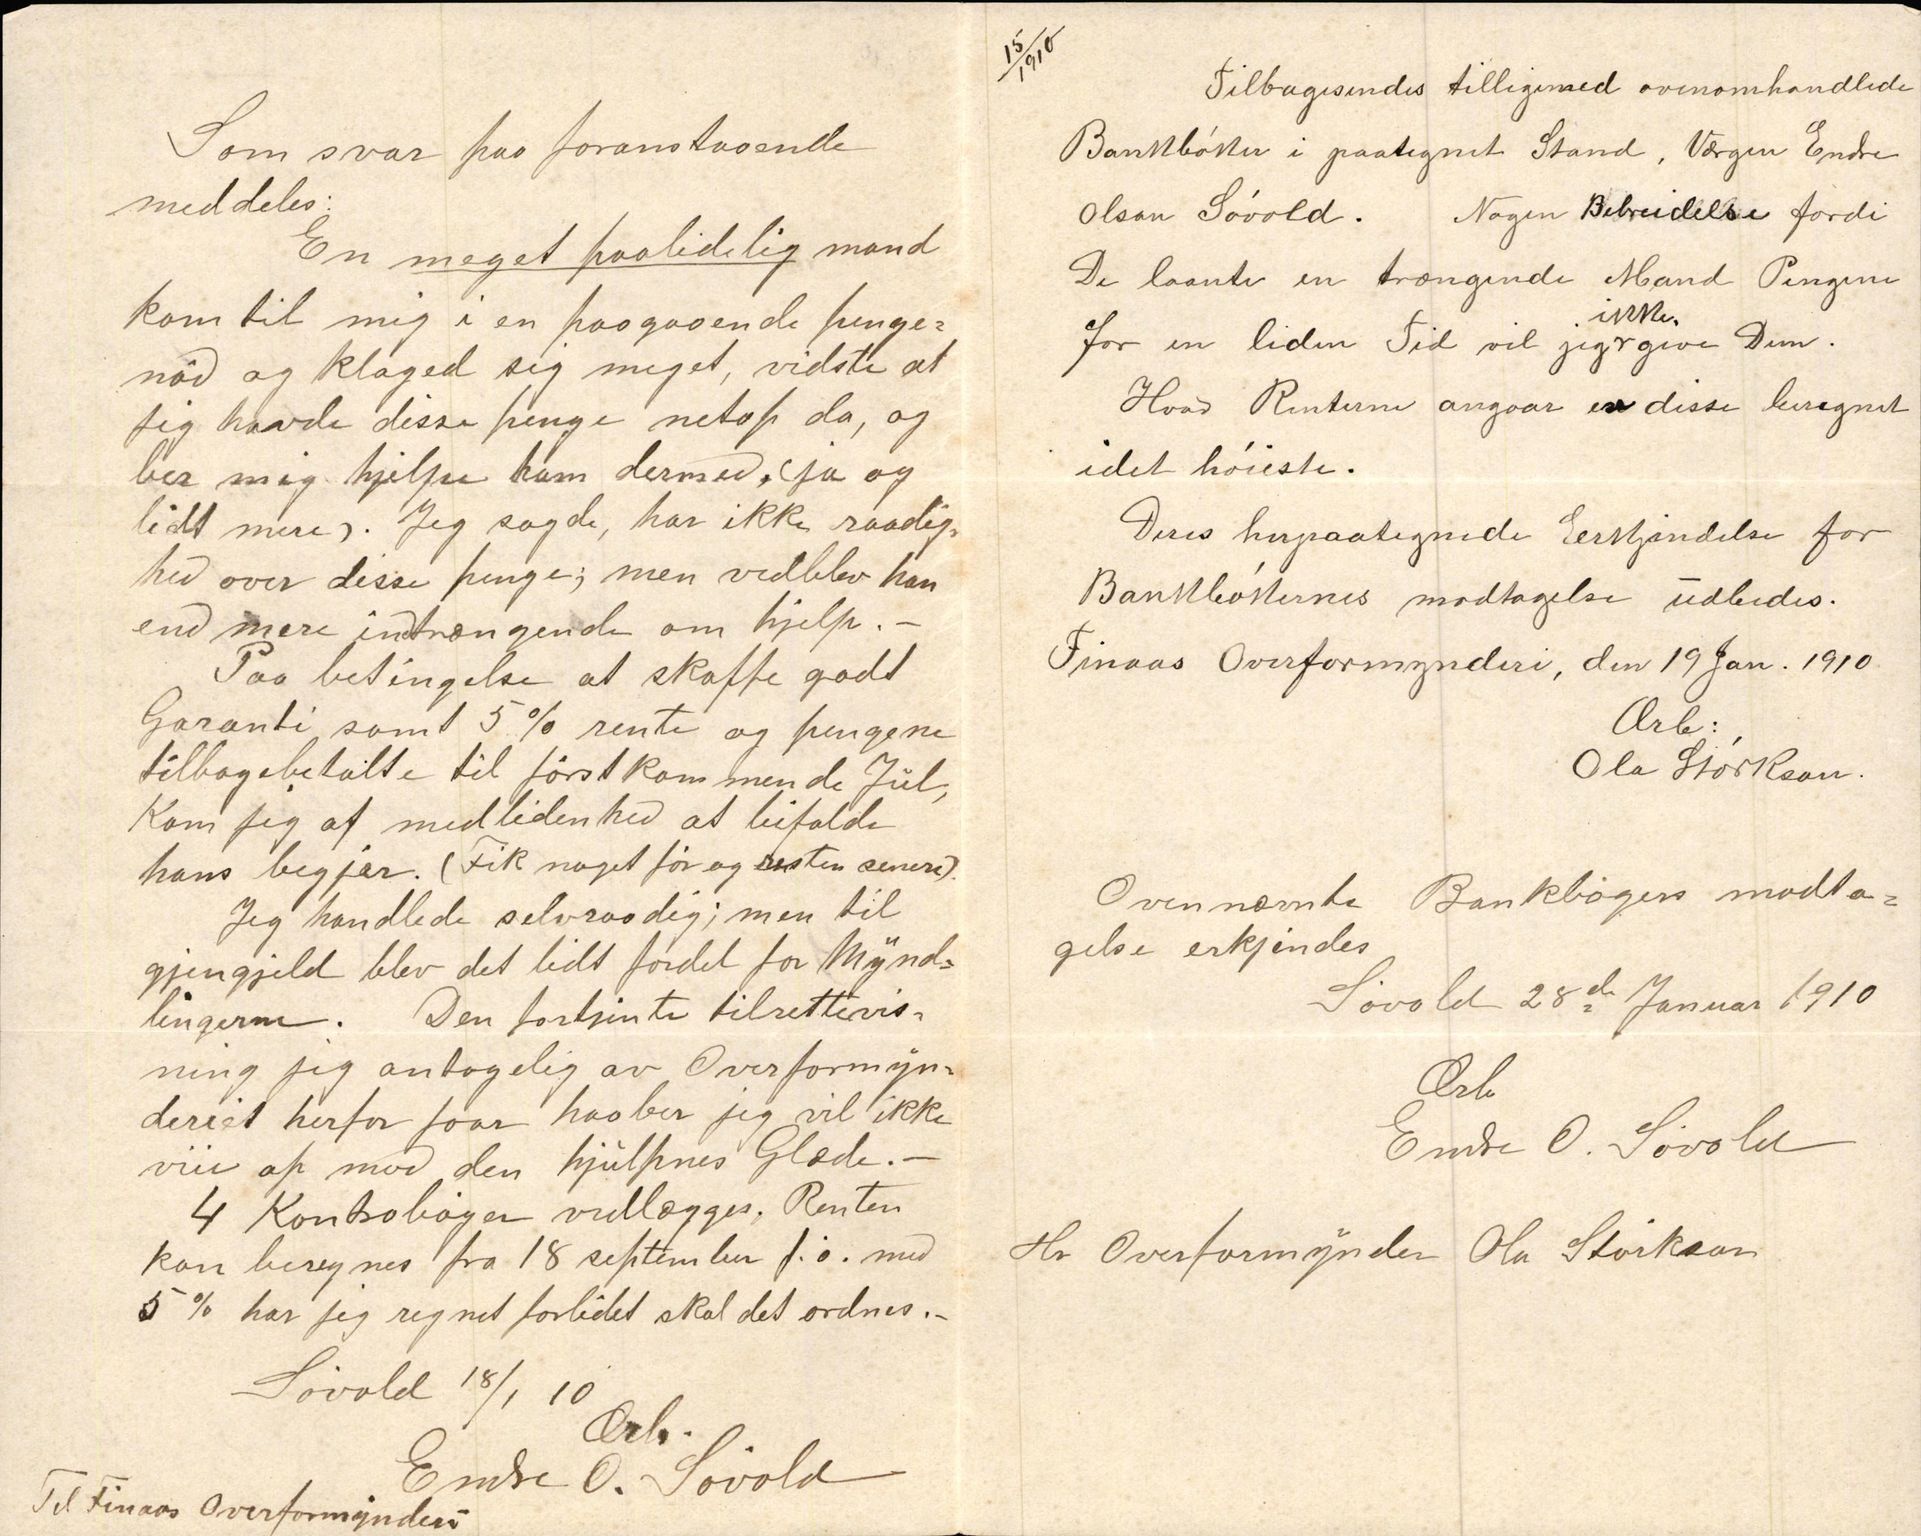 Som svar paa foranstaaende
meddeles:
En meget paalidelig mand
kom til mig i en paagaaende penge=
nöd og klaged sig meget, vidste at
jeg havde disse penge netop da, og
ber mig hjelpe ham dermed, (ja og
lidt mere). Jeg sagde, har ikke raadig=
hed over disse penge; men vedblev han
end mere indtrængende om hjelp. –
Paa betingelse at skaffe godt
Garanti samt 5 % rente og pengene
tilbagebetalte til förstkommende Jul,
kom jeg af medlidenhed at bifalde
hans begjær. (Fik noget för og resten senere).
Jeg handlede selvraadig; men til
gjengjeld blev det lidt fordel for Mynd=
lingerne. Den fortjente tilrettevis=
ning jeg antagelig av Overformyn=
deriet herfor faar haaber jeg vil ikke
viie op mod den hjülpnes Glæde. –
4 Kontraböger vedlægges, Renten
kan beregnes fra 18 september f. å. med
5 % har jeg regnet forlidet skal det ordnes. –
Sövold 18/1 10
Ærb.
Endre O. Sövold
Til Finaas Overformynderi
15/1910
Tilbagesendes tilligemed ovenomhandlede
Bankbóker i paategnet Stand, Værgen Endre
Olson Sóvold. Nogen Bebreidelse fordi
De laante en trængende Mand Pengene
ikke
for en liden Tid vil jeg give Dem.
Hvad Renterne angaar er disse beregnet
idet hóieste.
Deres herpaategnede Eerkjendelse for
Bankbókernes modtagelse udbedes.
Finaas Overformynderi, den 19 Jan. 1910
Ærb:
Ola Stórkson.
Ovennævnte Bankbögers modta=
gelse erkjendes
Sövold 28de Januar 1910
Ærb
Endre O. Sövold
Hr Overformynder Ola Störkson